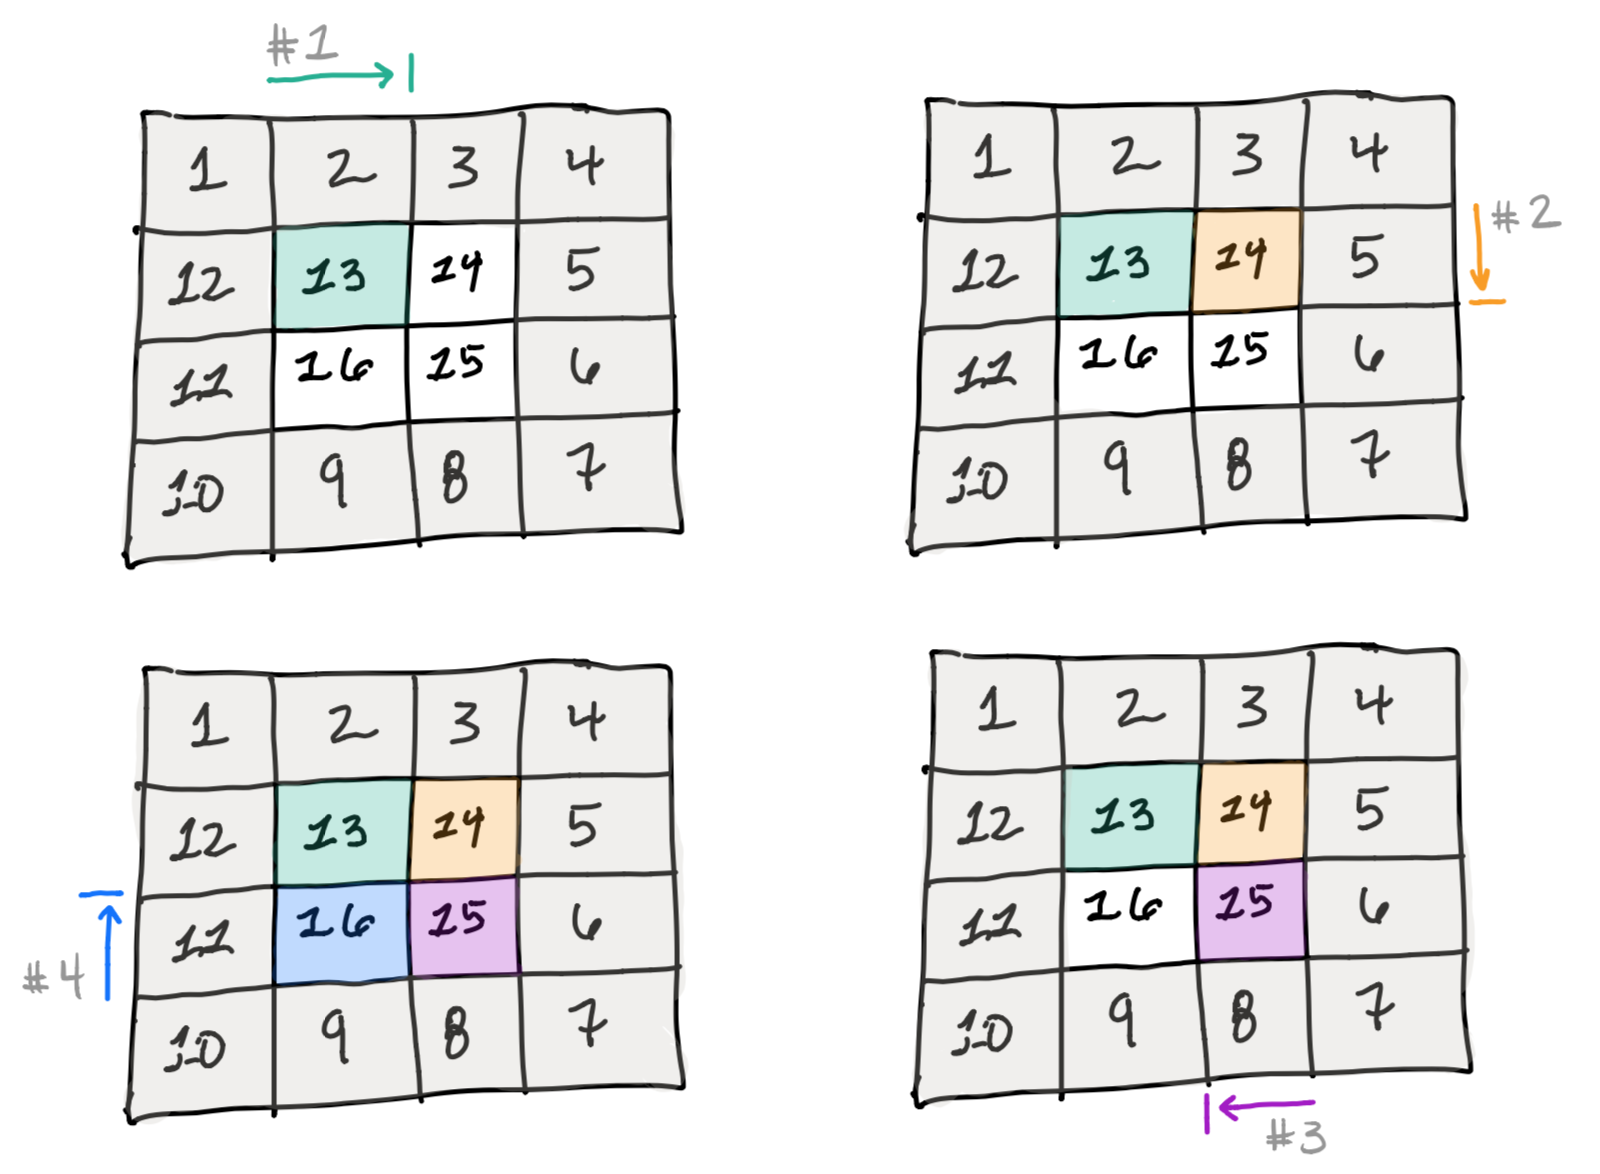 #1
1 2 3 4
12 13 14 5
11 16 15 6
10 9 8 7
#2
1 2 3 4
12 13 14 5
11 16 15 6
10 9 8 7
#4
1 2 3 4
12 13 14 5
11 16 15 6
10 9 8 7
1 2 3 4
12 13 14 5
11 16 15 6
10 9 8 7
#3